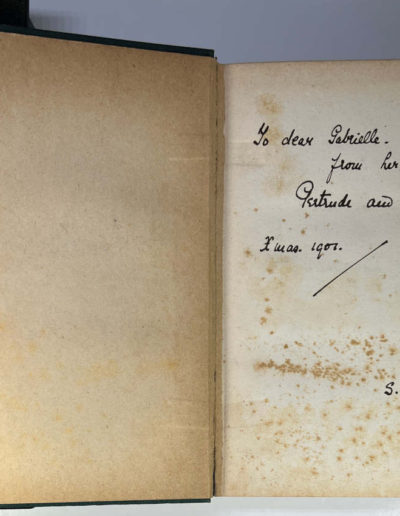 To dear Gabrielle.
from her
Gertrude and
Xmas. 1901.
S.